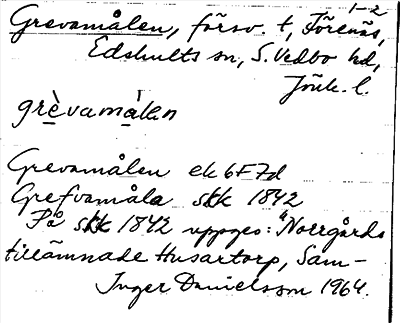 1-2
Grevamålen, försv. t, Förenäs,
Edshults sn, S. Vedbo hd,
Jönk. l.
grèvamàlen
Grevamålen ek 6F7d
Grefvamåla skk 1842
På skk 1842 uppges: "Norrgårds
tillämnade Husartorp, Sam-
Inger Danielsson 1964.